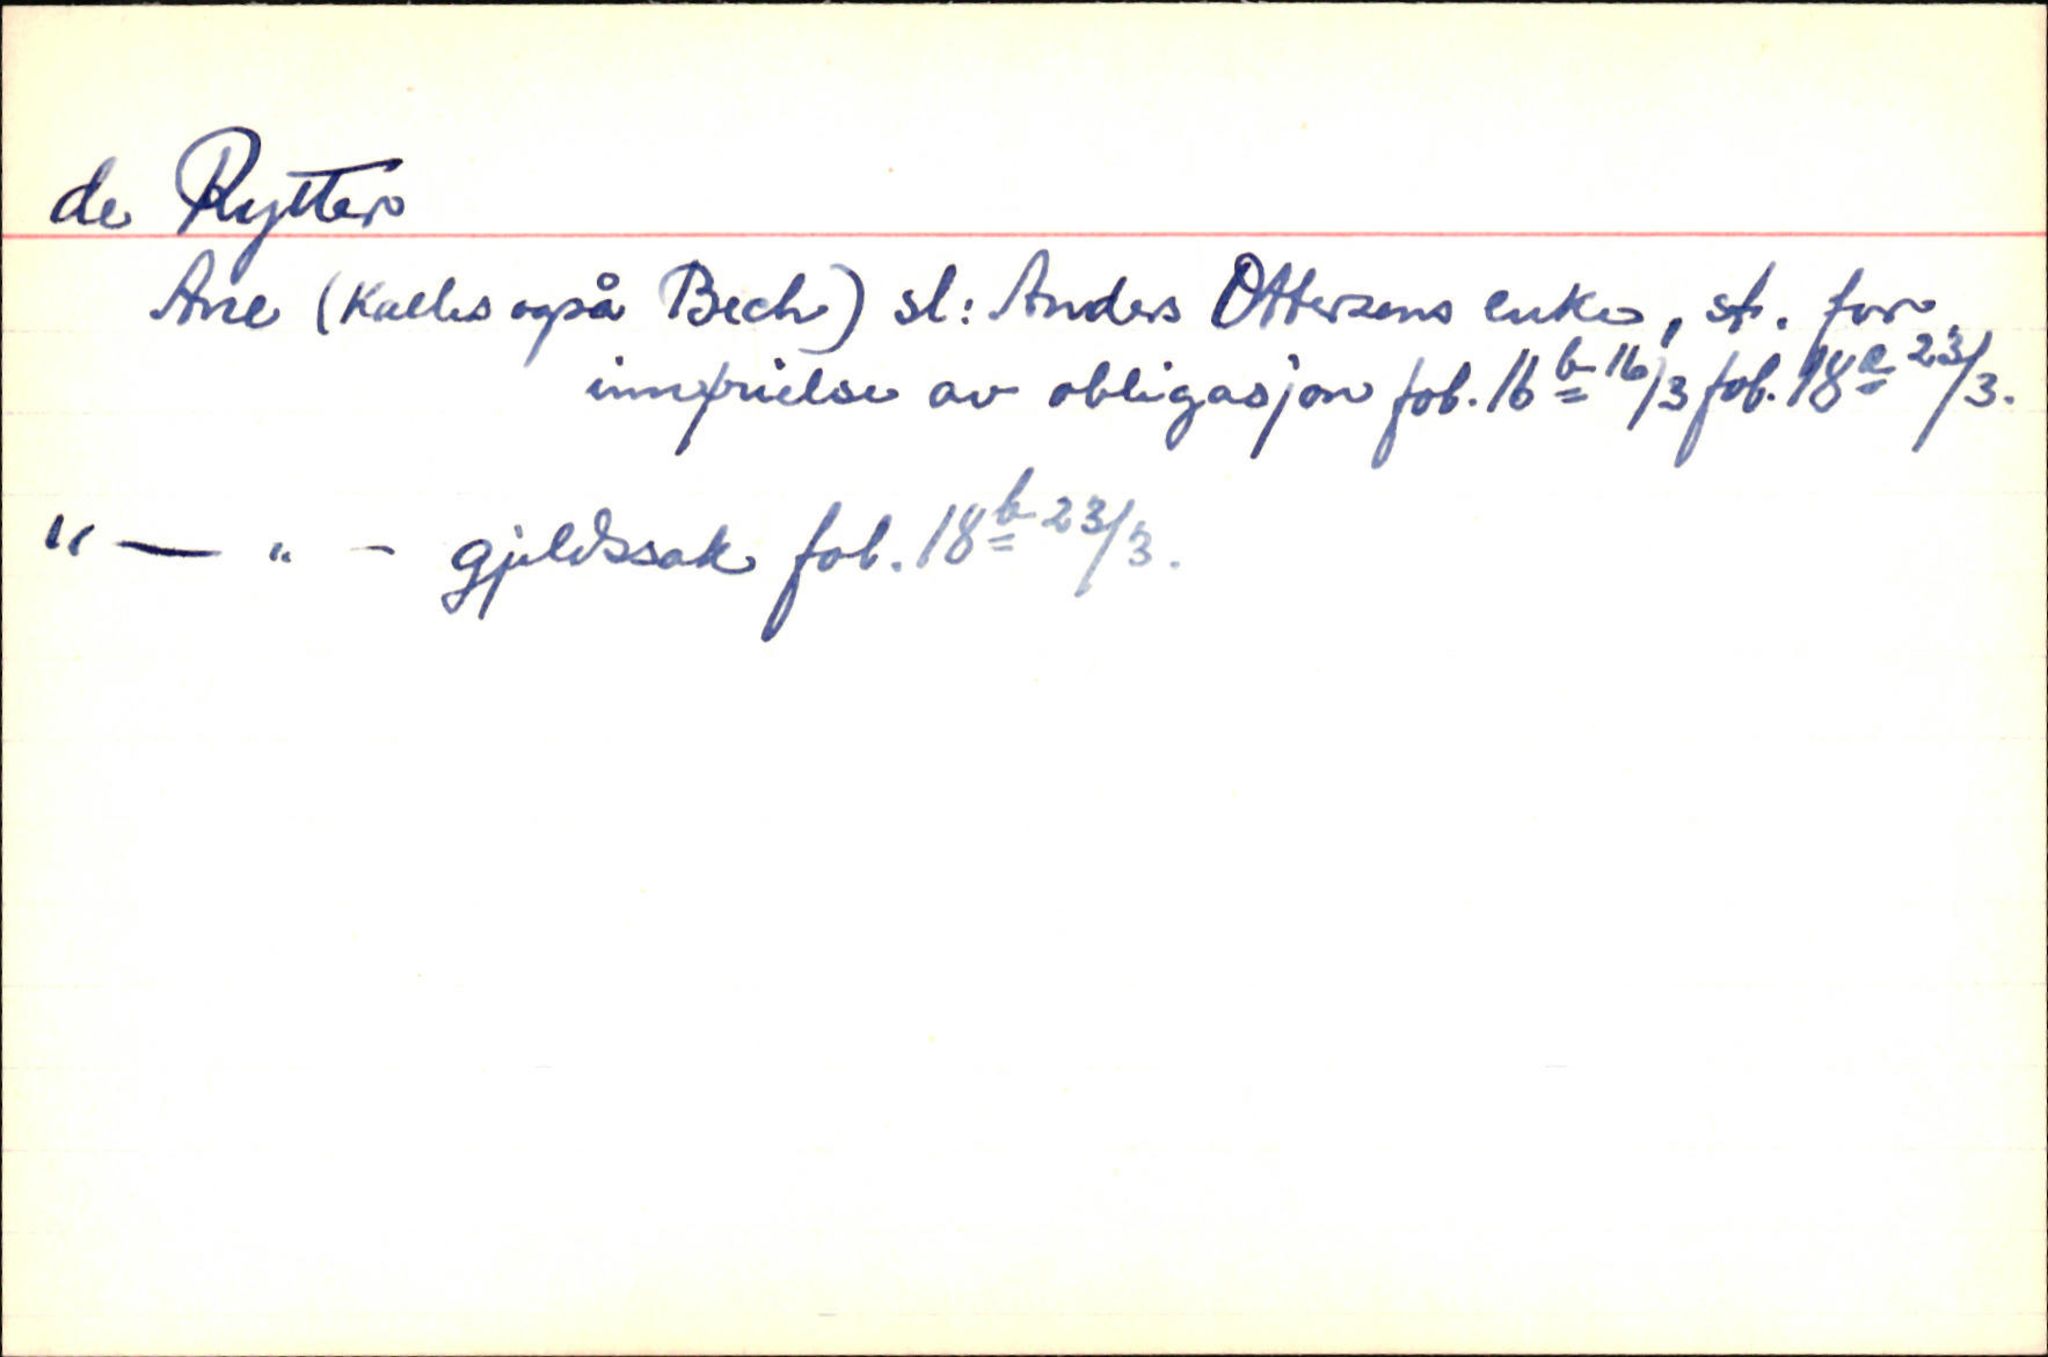 de Rytter
Ane (kalles også Bech) sl: Anders Ottersens enke, st. for
innfrielse av obligasjon fol. 16b 16/3 fol. 18a 23/3.
" — " - gjeldssak fol. 18b 23/3.